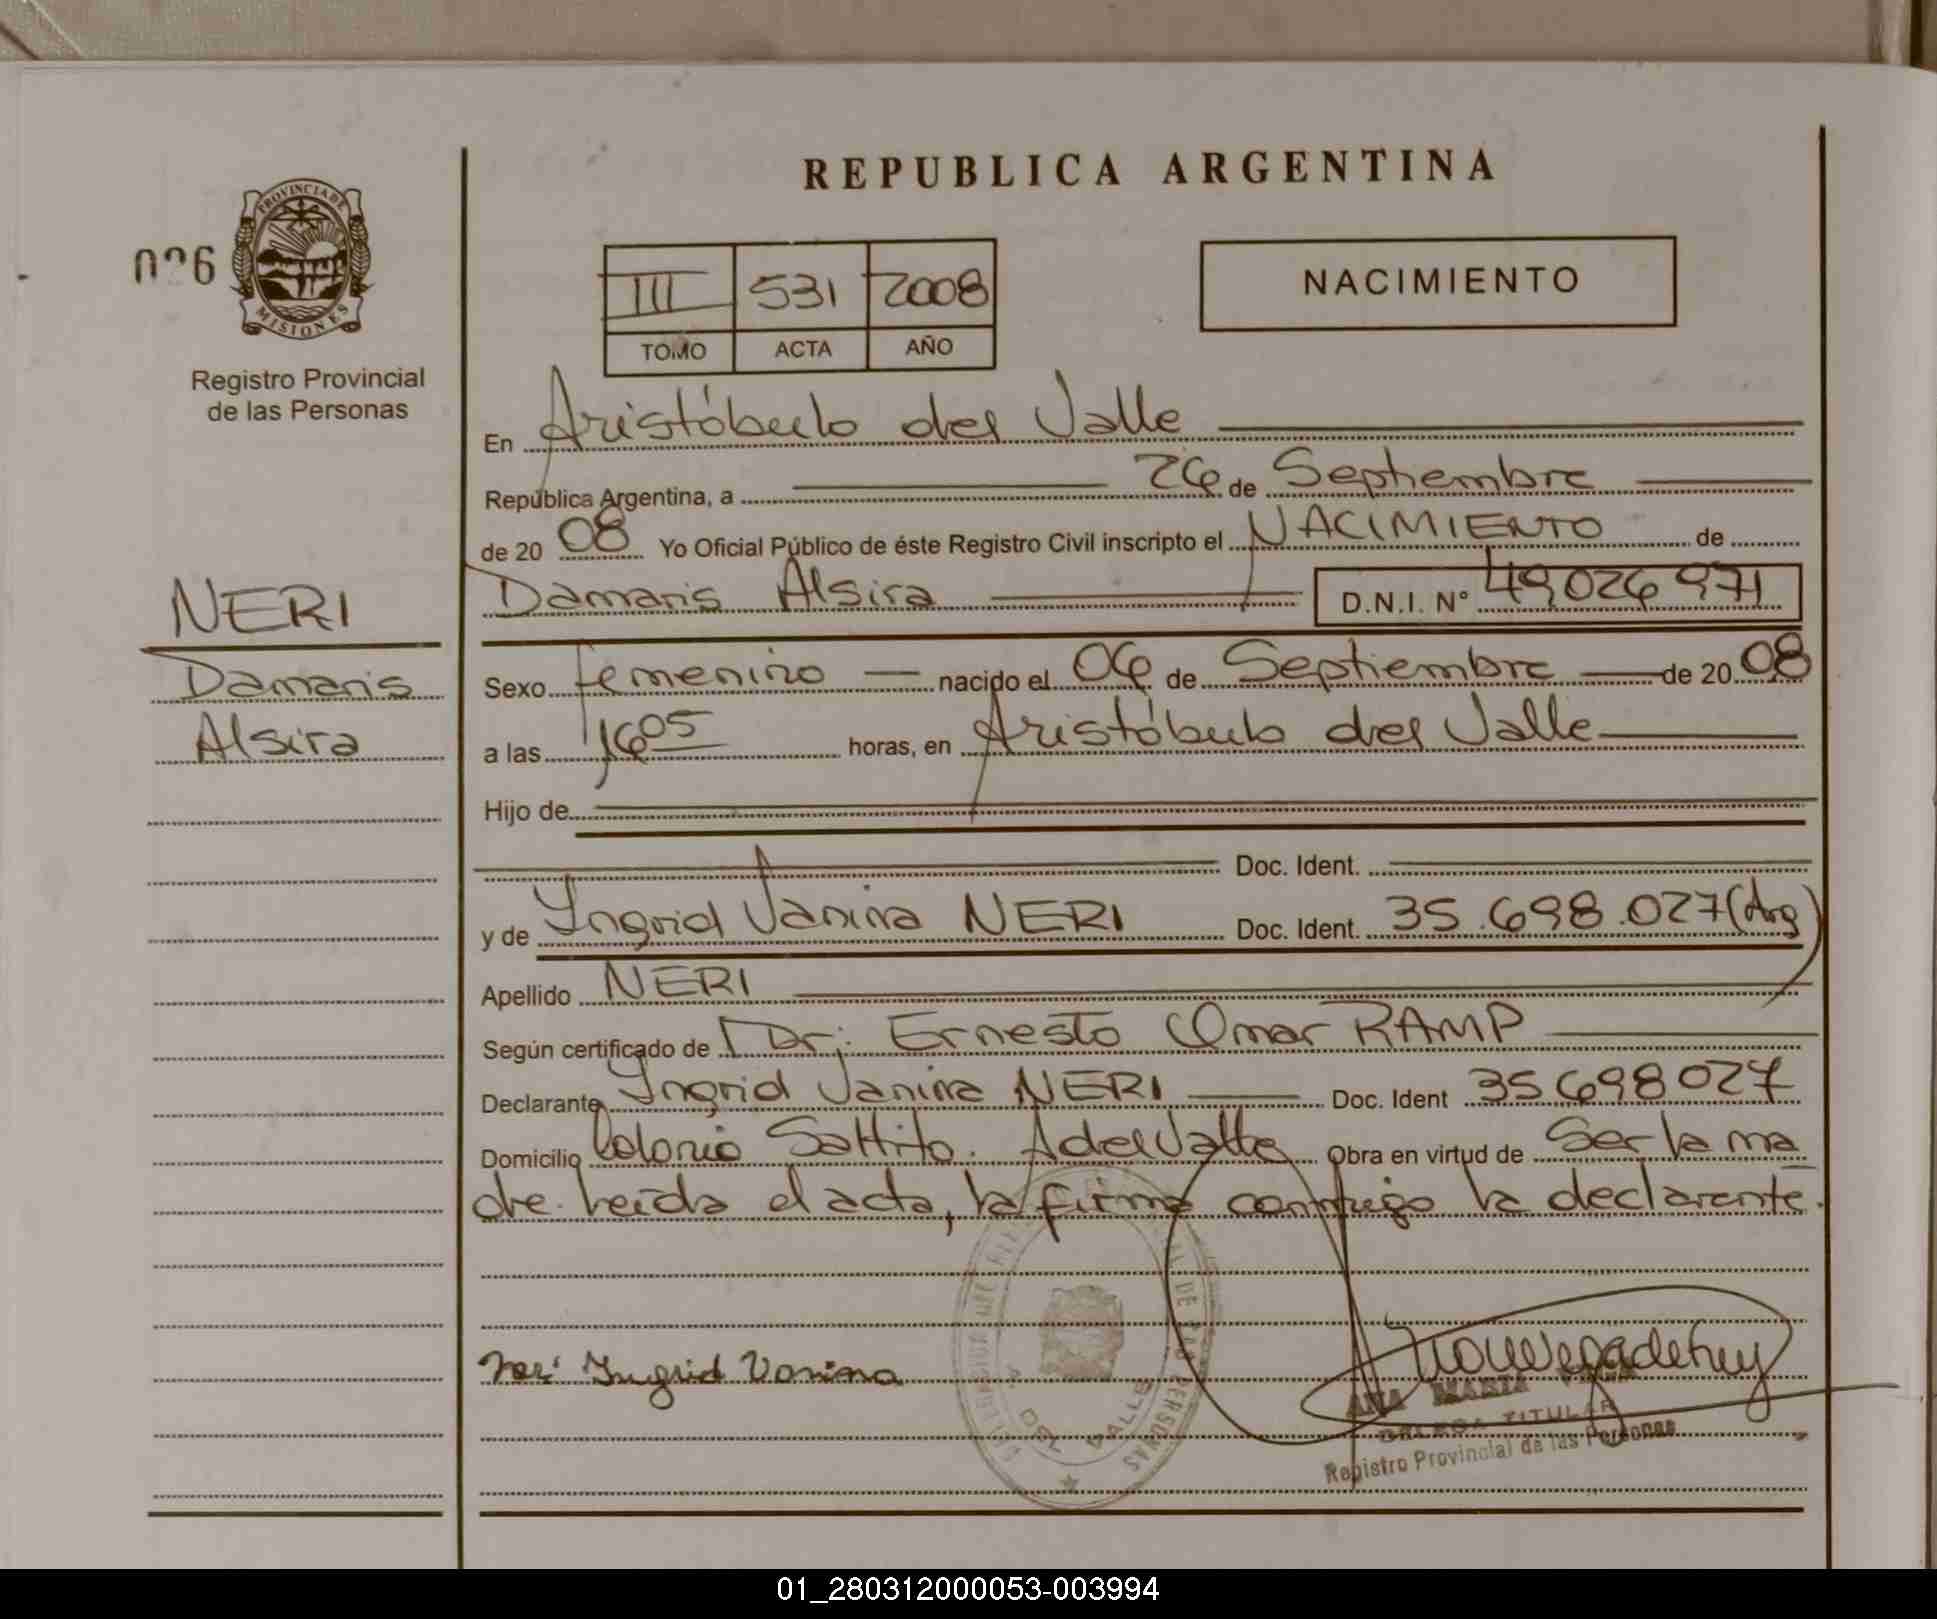 REPUBLICA ARGENTINA
026
PROVINCIA DE
MISIONES
Registro Provincial
de las Personas
III 531 2008
TOMO ACTA AÑO
NACIMIENTO
En Aristóbulo del Valle
República Argentina, a 26 de Septiembre
de 20 08 Yo Oficial Público de éste Registro Civil inscripto el NACIMIENTO de
Damaris Alsira D.N.I. N° 49026971
NERI
Damaris
Alsira
Sexo femenino nacido el 06 de Septiembre de 20 08
a las 16 05 horas, en Aristóbulo del Valle
Hijo de
Doc. Ident.
y de Yngrid Vanina NERI Doc. Ident. 35.698.027 (Arg)
Apellido NERI
Según certificado de Dr: Ernesto Omar RAMP
Declarante Yngrid Vanina NERI Doc. Ident 35698027
Domicilio Colonia Saltito. A del Valle Obra en virtud de Ser la ma
dre. Leída el acta, la firma conmigo la declarante.
Neri Yngrid Vanina
DEL VALLE
DE LAS PERSONAS
ANA MARIA
TITULAR
Registro Provincial de las Personas
01_280312000053-003994